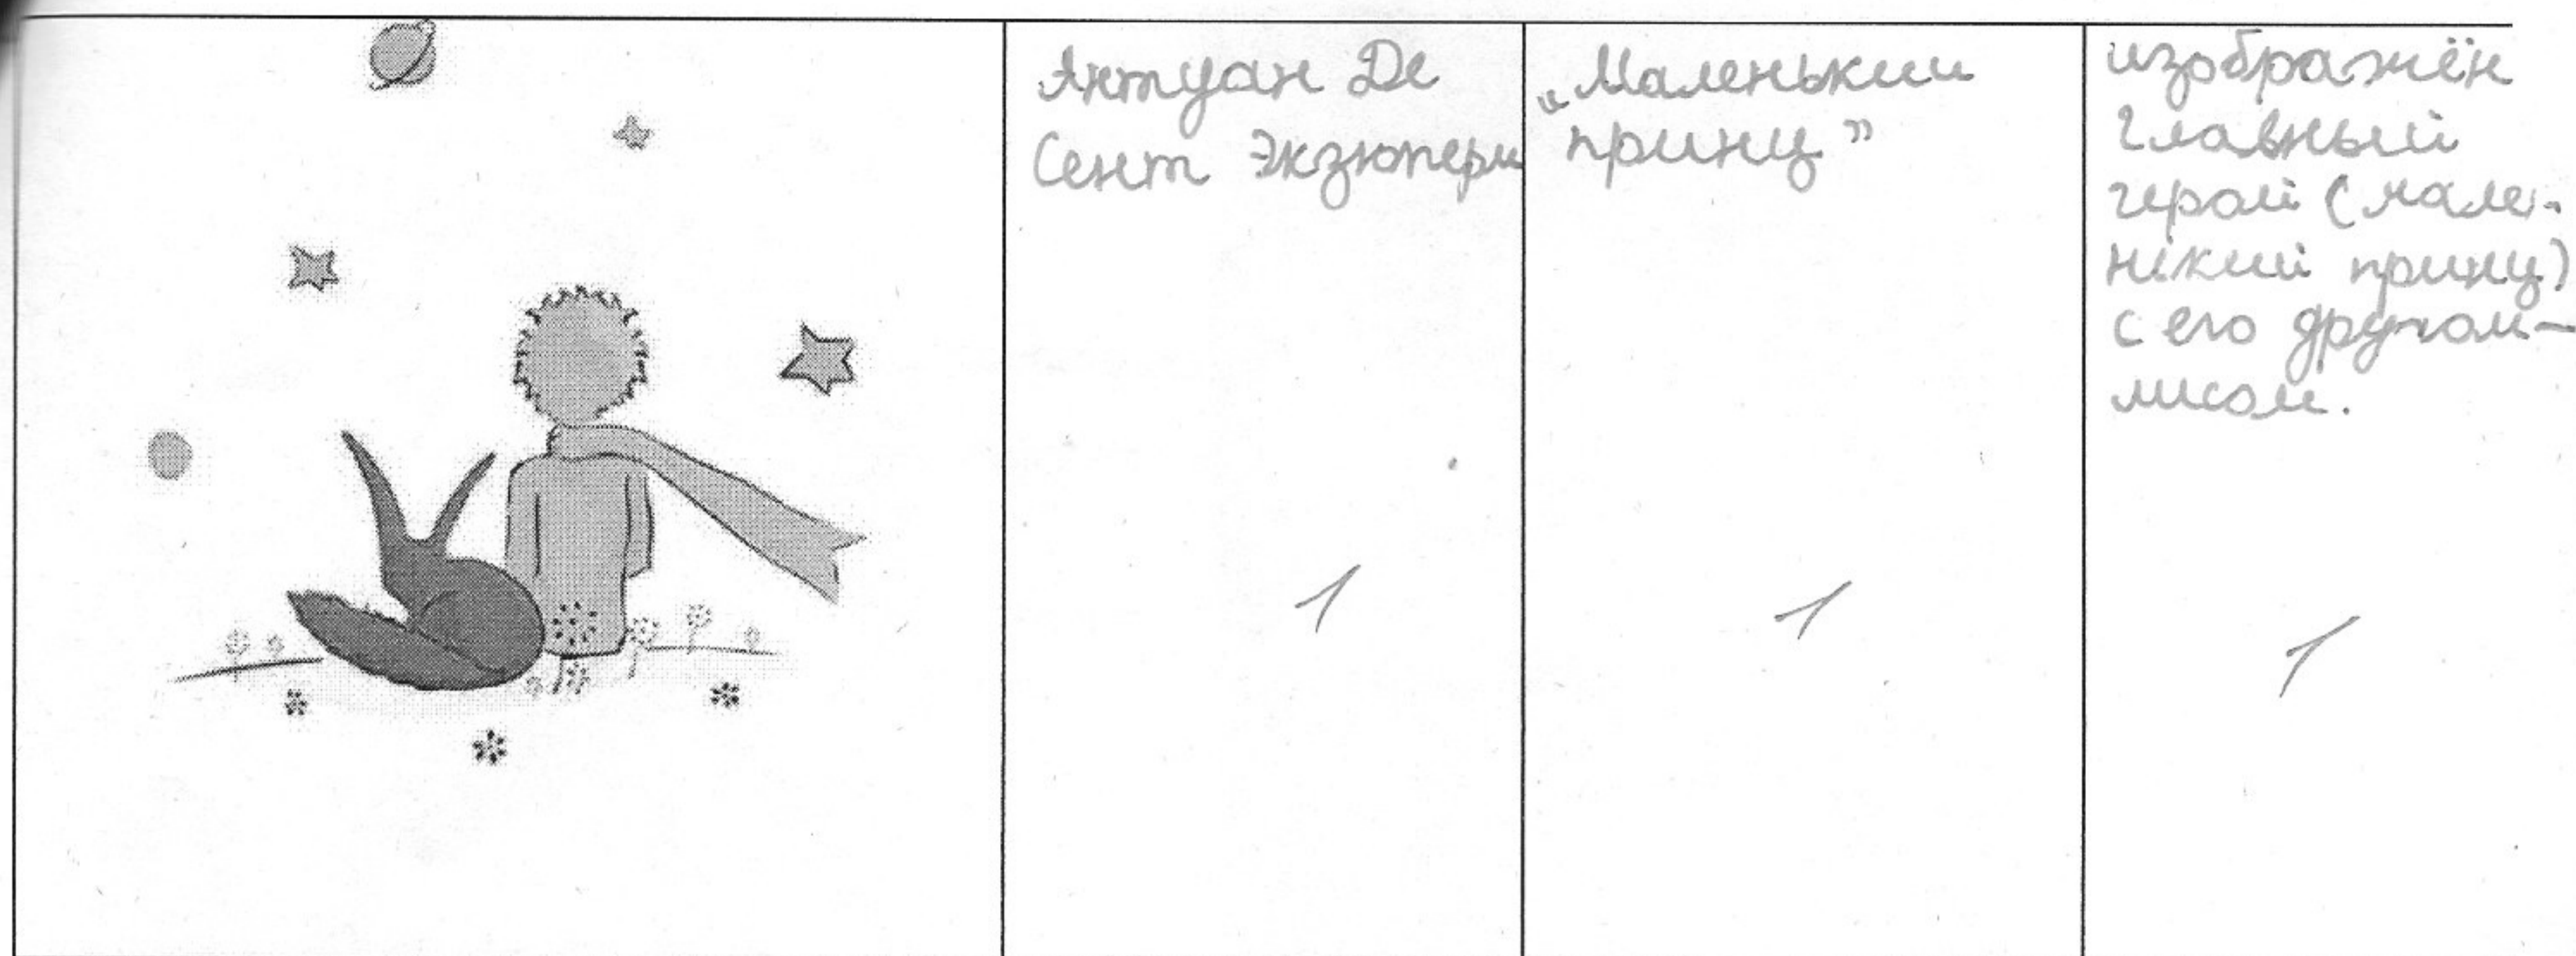 Антуан Де
Сент Экзюпери
„Маленькии
принц”
изображён
главный
герой (мале-
нький принц)
с его другом-
лисом.
1
1
1